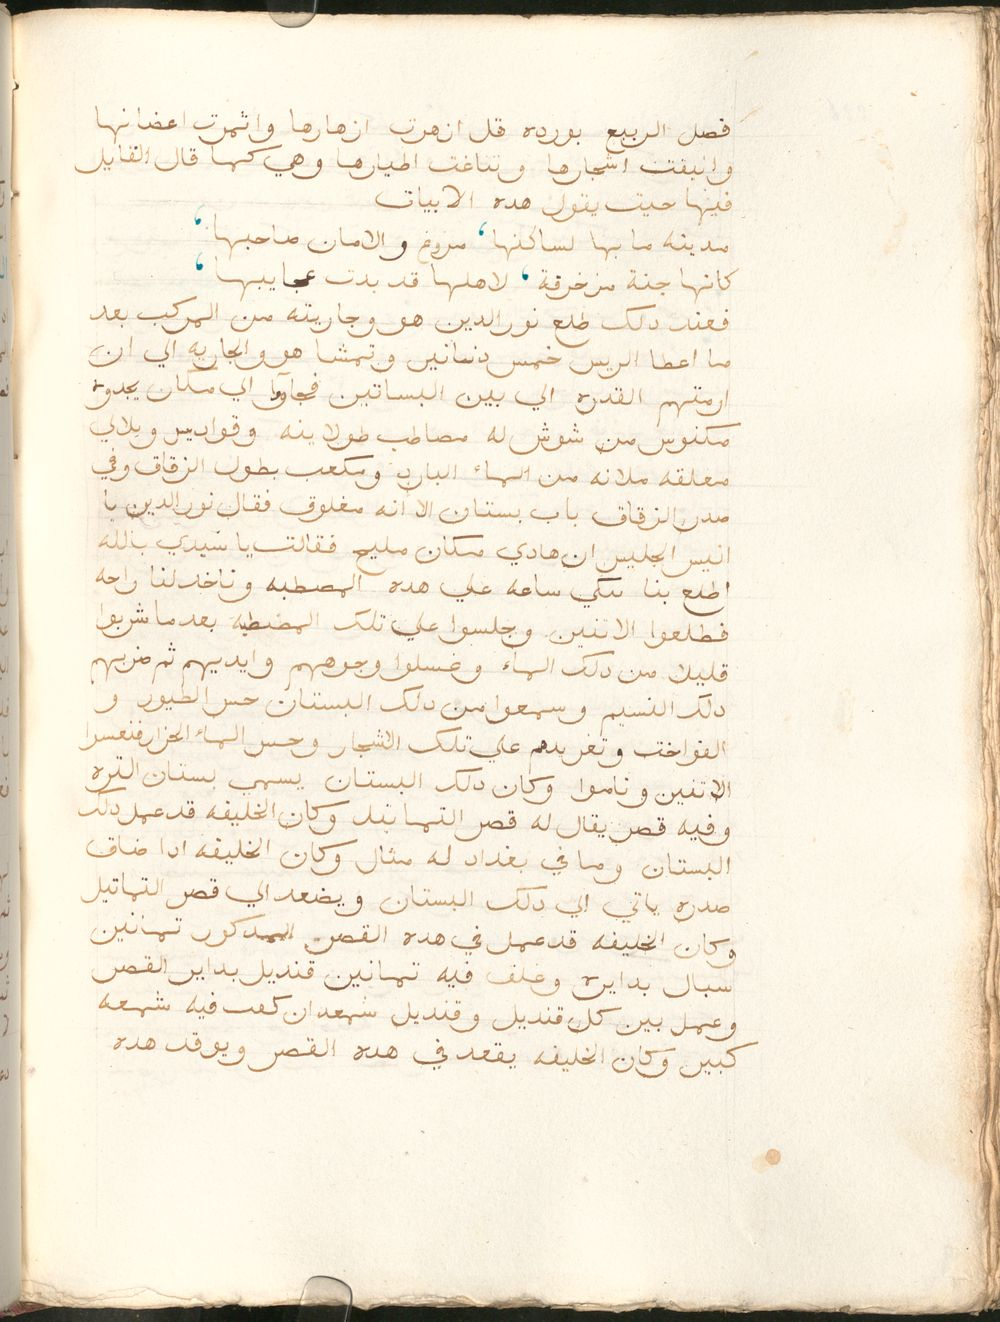 فصل الربيع بورده قد ازهرت ازهارها واثمرت اعضانها
واينفت اشجارها وتناغت اطيارها وهي كما قال القايل
فيها حيت يقول هده الابيات
مدينه ما بها لساكنها، مروع والامان صاحبها،
كانها جنة مزخرفة، لاهلها قد بدت عجايبها،
فعند دلك طلع نور الدين هو وجاريته من المركب بعد
ما اعطا الريس خمس دنانين وتمشا هو والجاريه الي ان
ارمتهم القدره الي بين البساتين فجاآوا الي مكان يجدوه
مكنوس من شوش له مصاطب طولاينه وقواديس وبلالي
معلقه ملانه من الماء البارد ومكعب بطول الزقاق وفي
صدر الزقاق باب بستان الا انه مغلوق فقال نور الدين يا
انيس الجليس ان هادي مكان مليح فقالت يا سيدي بالله
اطلع بنا نتكي ساعه علي هده المصطبه وناخد لنا راحه
فطلعوا الاتنين وجلسوا علي تلك المصطبه بعد ما شربوا
قليلا من دلك الماء وغسلوا وجوههم وايديهم ثم ضربهم
دلك النسيم وسمعوا من دلك البستان حس الطيور و
الفواخت وتغريدهم علي تلك الاشجار وحس الماء الخرار فنعسوا
الاتنين وناموا وكان دلك البستان يسمي بستان النزه
وفيه قصر يقال له قصر التماتيل وكان الخليفه قد عمل دلك
البستان وما في بغداد له مثال وكان الخليفه ادا ضاق
صدره ياتي الي دلك البستان ويضعد الي قصر التماتيل
وكان الخليفه قد عمل في هده القصر المدكور تمانين
سبال بدايره وعلف فيه تمانين قنديل بداير القصر
وعمل بين كل قنديل وقنديل شمعدان كعب فيه شمعه
كبير وكان الخليفه يقعد في هده القصر ويوقد هده